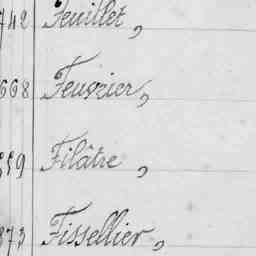 742 Feuillet,
668 Feuvrier,
359 Filâtre,
873 Fissellier,